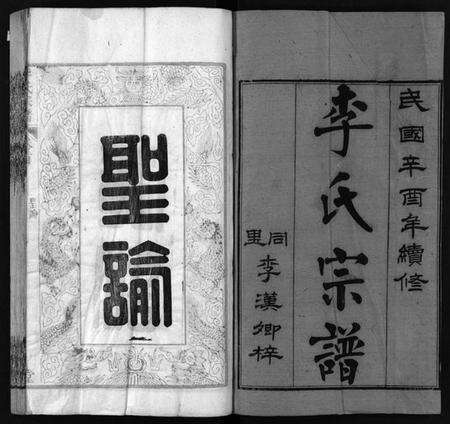 民國辛酉年續修
李氏宗譜
同里
李漢卿梓
聖諭